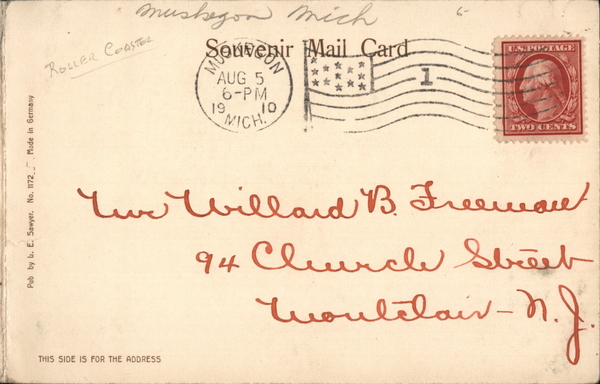 Muskegon Mich
Roller Coaster
Souvenir Mail Card
MUSKEGON
AUG 5
6-PM
1910
MICH.
1
U.S. POSTAGE
TWO CENTS
Pub by L. E. Sawyer. No. 1172 Made in Germany
Mr Willard B. Freeman
94 Church Street
Montclair - N. J.
THIS SIDE IS FOR THE ADDRESS